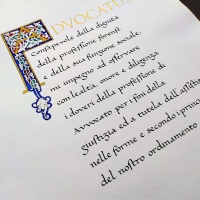 ADVOCATUS
Consapevole della dignità
della professione forense
e della sua funzione sociale,
mi impegno ad osservare
con lealtà, onore e diligenza
i doveri della professione di
Avvocato per i fini della
giustizia ed a tutela dell'assistito
nelle forme e secondo i principi
del nostro ordinamento